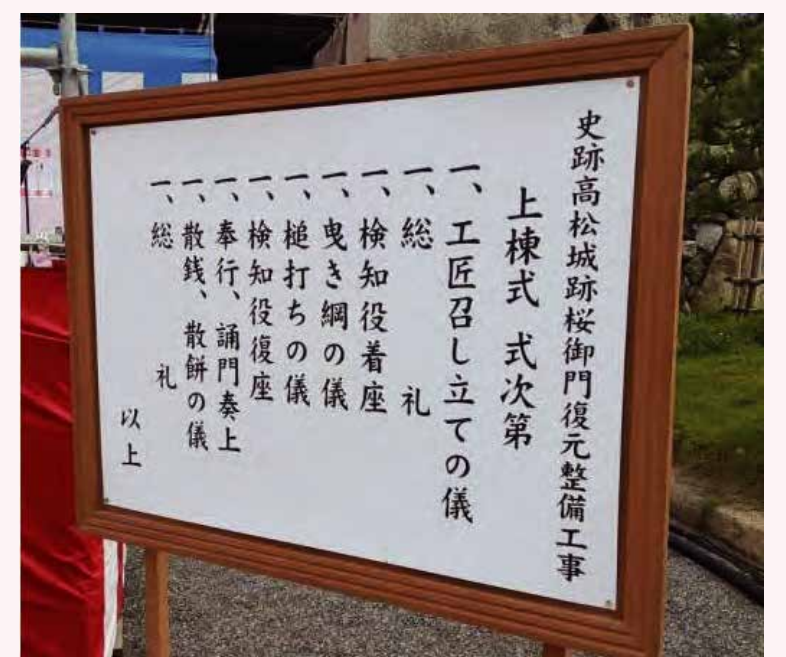 史跡高松城跡桜御門復元整備工事
上棟式 式次第
一、工匠召し立ての儀
一、総礼
一、検知役着座
一、曳き綱の儀
一、槌打ちの儀
一、検知役復座
一、奉行、誦門奏上
一、散銭、散餅の儀
一、総礼
以上